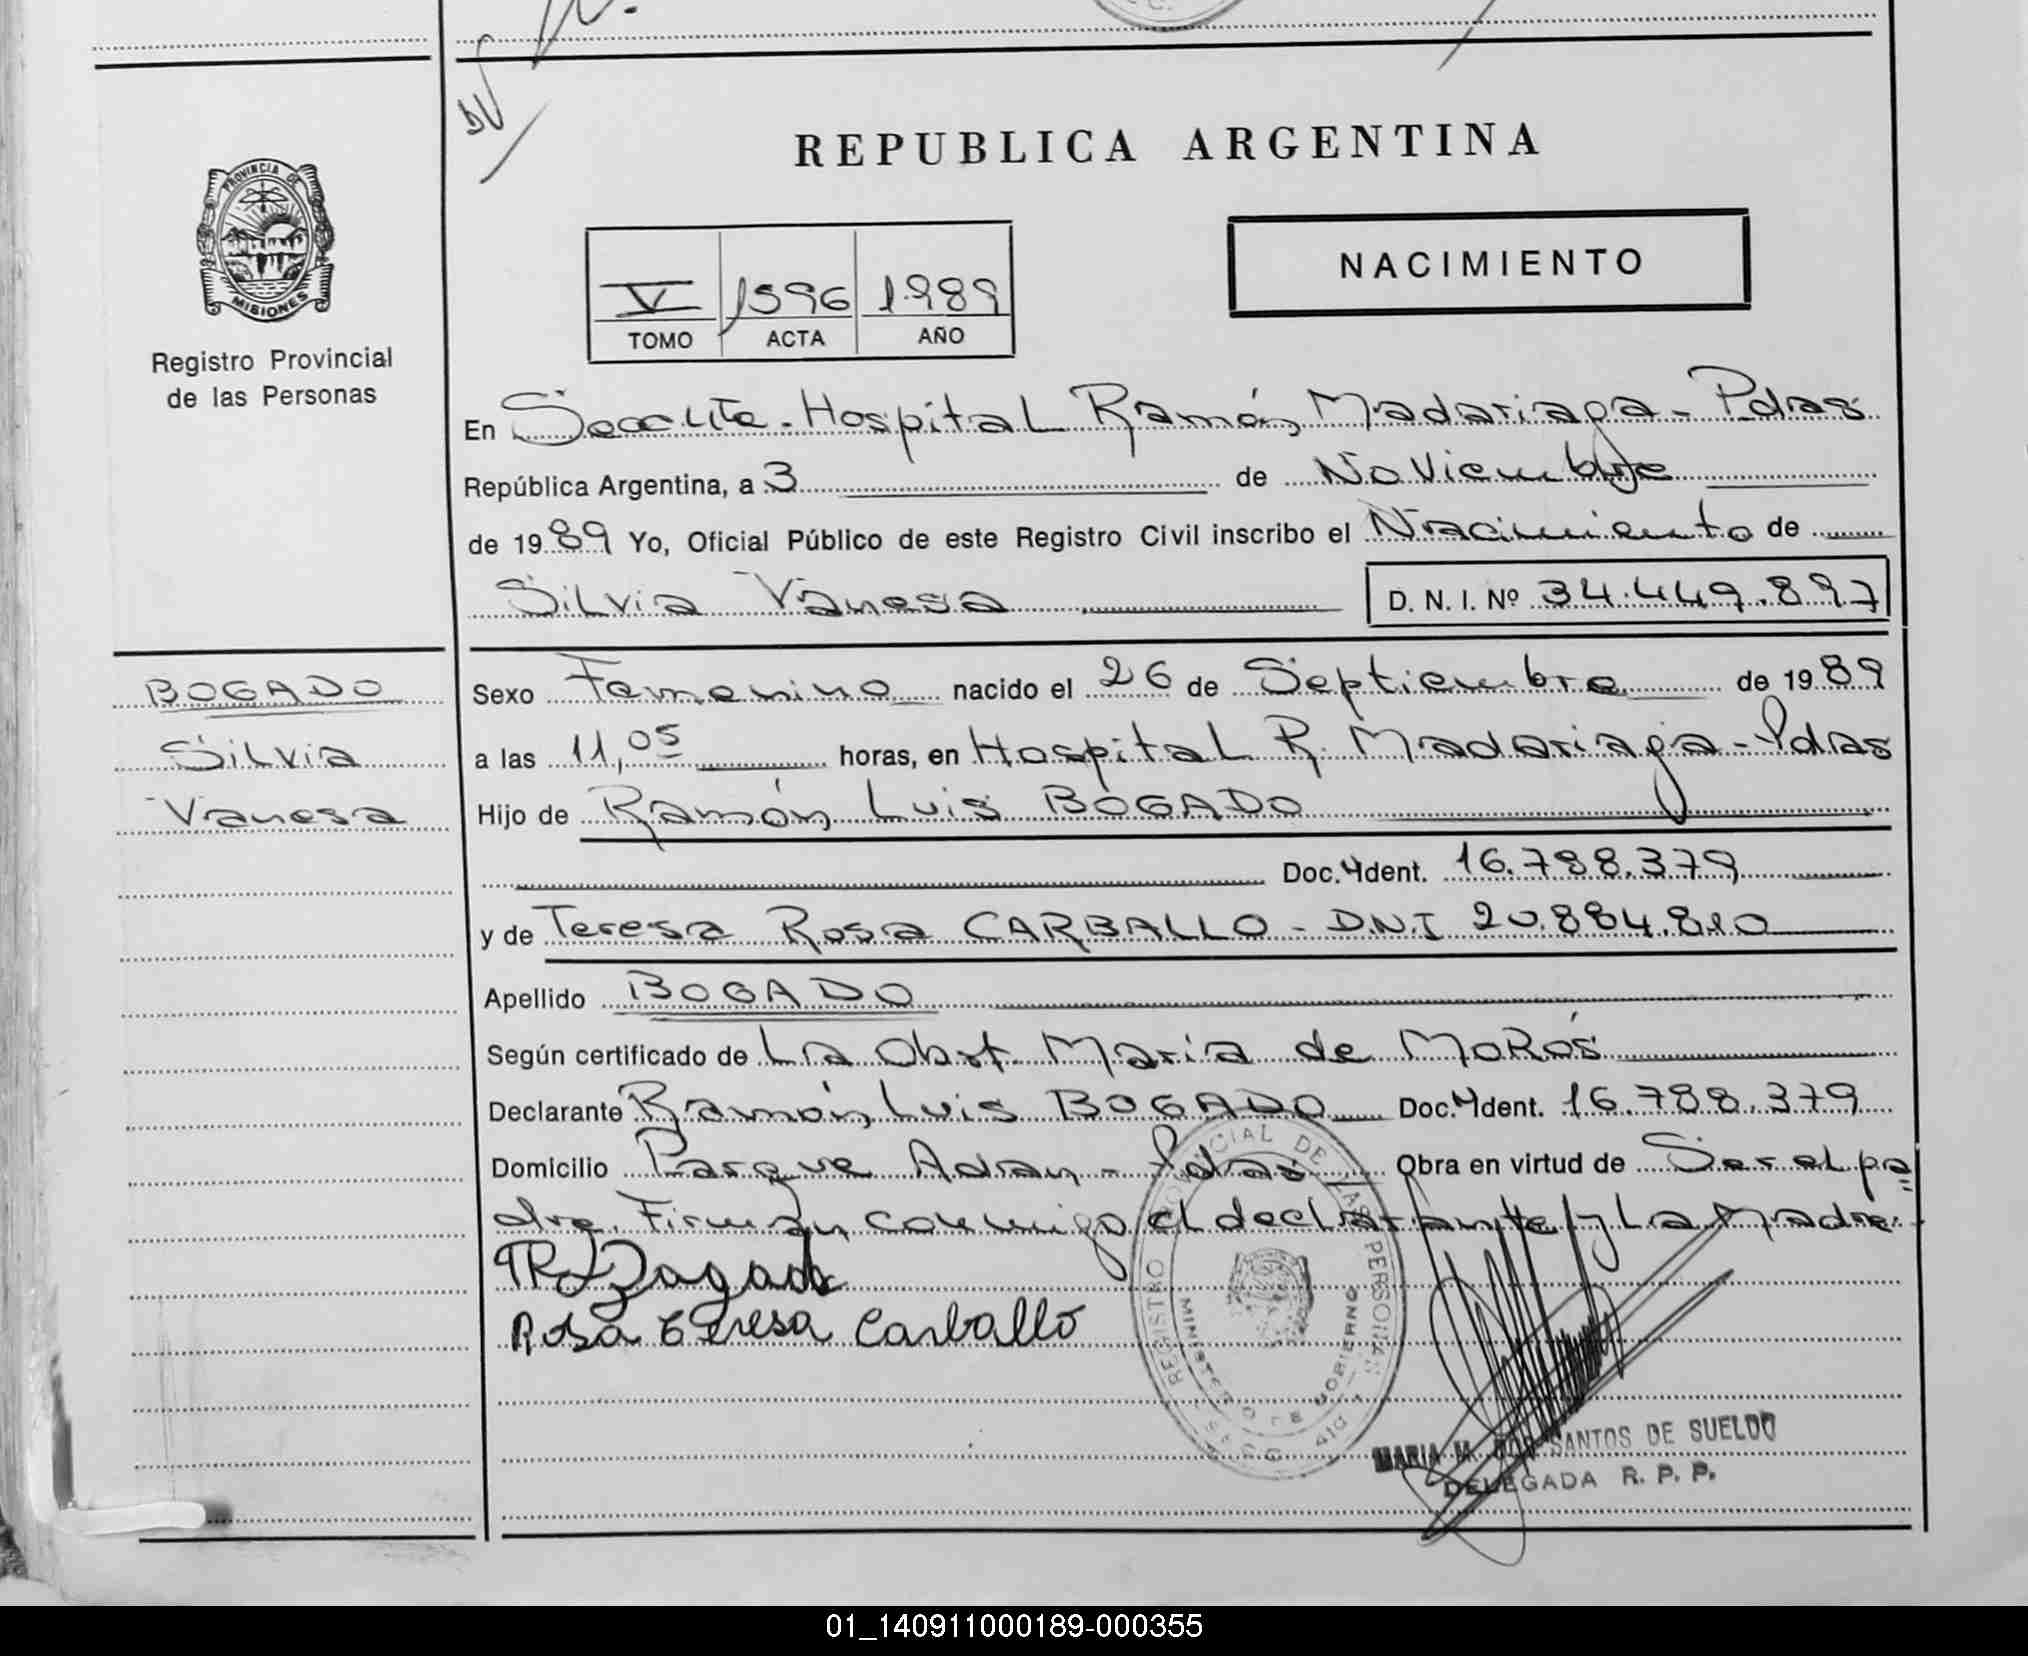 REPUBLICA ARGENTINA
PROVINCIA DE
MISIONES
Registro Provincial
de las Personas
V 1596 1989
TOMO ACTA AÑO
NACIMIENTO
En Secc Hospital Ramón Madariaga - Pdas
República Argentina, a 3 de Noviembre
de 1989 Yo, Oficial Público de este Registro Civil inscribo el Nacimiento de
Silvia Vanesa D. N. I. Nº 34.449.897
BOGADO
Silvia
Vanesa
Sexo Femenino nacido el 26 de Septiembre de 1989
a las 11,05 horas, en Hospital R. Madariaga - Pdas
Hijo de Ramón Luis BOGADO
Doc. Ident. 16.788.379
y de Teresa Rosa CARBALLO - D.N.I 20.884.810
Apellido BOGADO
Según certificado de La Obst. María de MoRós
Declarante Ramón Luis BOGADO Doc. Ident. 16.788.379
Domicilio Parque Adan - Pdas Obra en virtud de Ser el pa
dre. Firman conmigo el declarante y La Madre.
Bogado
Rosa Teresa Carballo
REGISTRO PROVINCIAL DE LAS PERSONAS
MINISTERIO DE GOBIERNO
MARIA M. DOS SANTOS DE SUELDO
DELEGADA R. P. P.
01_140911000189-000355